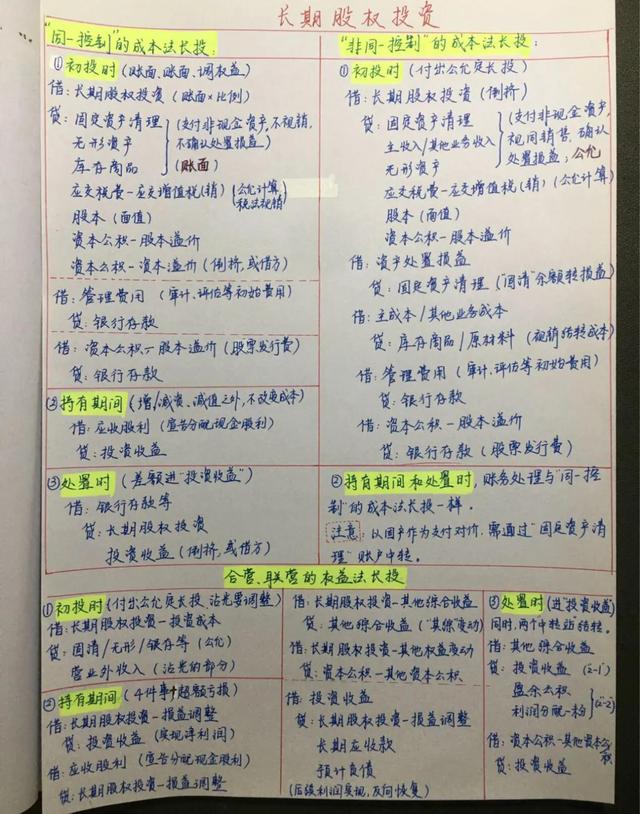 长期股权投资
"同一控制"的成本法长投:
①初投时(账面、账面、调权益)
借:长期股权投资(账面×比例)
贷:固定资产清理
无形资产
库存商品
(支付非现金资产,不视销,
不确认处置损益)
(账面)
应交税费-应交增值税(销)(公允计算,
税法视销)
股本(面值)
资本公积-股本溢价
资本公积-资本溢价(倒挤,或借方)
借:管理费用(审计、评估等初始费用)
贷:银行存款
借:资本公积-股本溢价(股票发行费)
贷:银行存款
②持有期间(增/减资、减值之外,不改变成本)
借:应收股利(宣告分配现金股利)
贷:投资收益
③处置时(差额进"投资收益")
借:银行存款等
贷:长期股权投资
投资收益(倒挤,或借方)
"非同一控制"的成本法长投:
①初投时(付出公允定长投)
借:长期股权投资(倒挤)
贷:固定资产清理
主收入/其他业务收入
无形资产
(支付非现金资产,
视同销售,确认
处置损益;公允
应交税费-应交增值税(销)(公允计算)
股本(面值)
资本公积-股本溢价
借:资产处置损益
贷:固定资产清理("固清"余额转损益)
借:主成本/其他业务成本
贷:库存商品/原材料(视销结转成本)
借:管理费用(审计、评估等初始费用)
贷:银行存款
借:资本公积-股本溢价
贷:银行存款(股票发行费)
②持有期间和处置时,账务处理与"同一控
制"的成本法长投一样。
注意:以固产作为支付对价,需通过"固定资产清
理"账户中转。
合营、联营的权益法长投
①初投时(付出公允定长投,沾光要调整)
借:长期股权投资-投资成本
贷:固清/无形/银存等(公允)
营业外收入(沾光的部分)
②持有期间(4件事+超额亏损)
借:长期股权投资-损益调整
贷:投资收益(实现净利润)
借:应收股利(宣告分配现金股利)
贷:长期股权投资-损益调整
借:长期股权投资-其他综合收益
贷:其他综合收益("其综"变动)
借:长期股权投资-其他权益变动
贷:资本公积-其他资本公积
借:投资收益
贷:长期股权投资-损益调整
长期应收款
预计负债
(后续利润实现,反向恢复)
③处置时(进"投资收益")
同时,两个中转站结转。
借:其他综合收益
贷:投资收益
盈余公积
利润分配-未分
借:资本公积-其他资本公
积
贷:投资收益